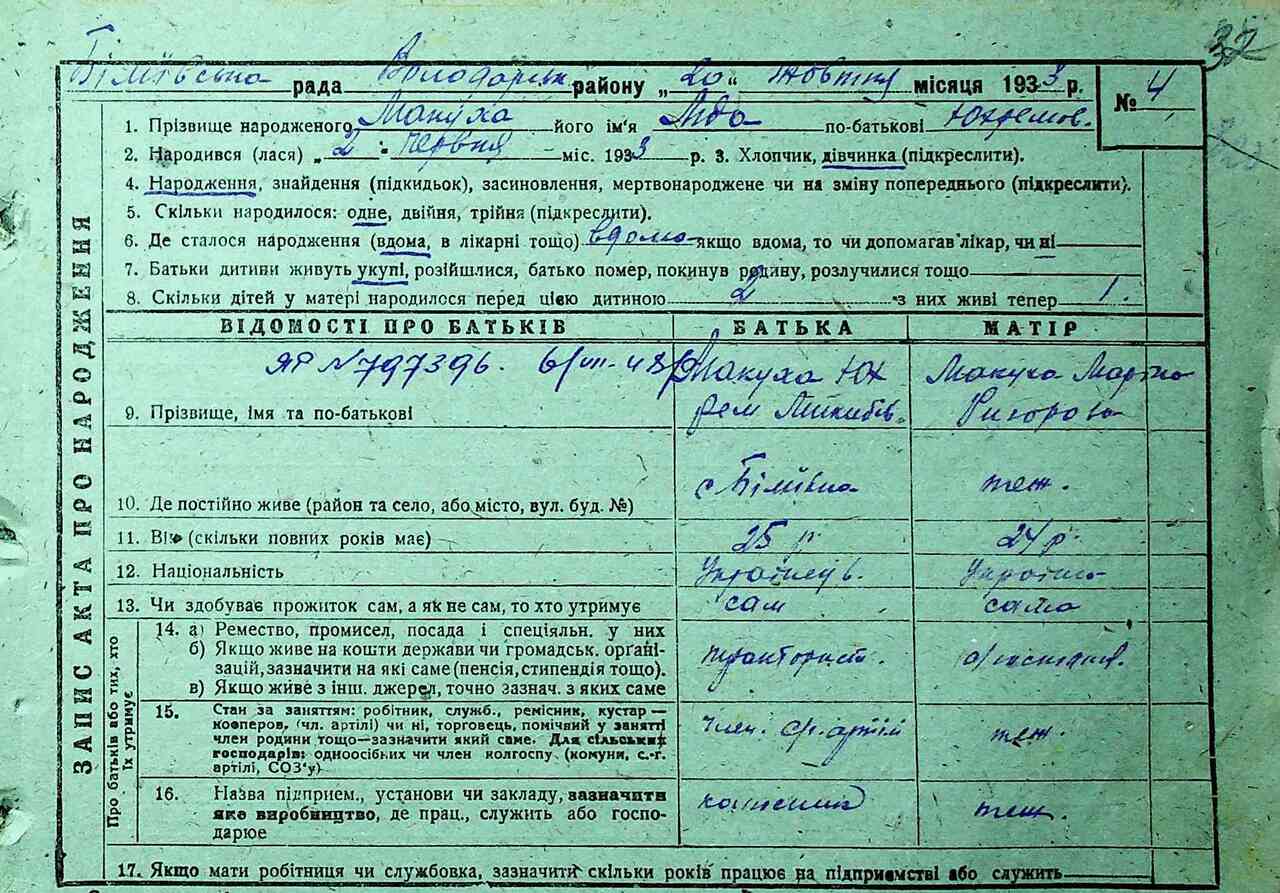 32
Біліївська рада Володарськ району „20“ жовтня місяця 1933 р. № 4
ЗАПИС АКТА ПРО НАРОДЖЕННЯ
1. Прізвище народженого Макуха його ім'я Ліда по-батькові Юхремов.
2. Народився (лася) „2“ червня міс. 1933 р. 3. Хлопчик, дівчинка (підкреслити).
4. Народження, знайдення (підкидьок), засиновлення, мертвонароджене чи на зміну попереднього (підкреслити).
5. Скільки народилося: одне, двійня, трійня (підкреслити).
6. Де сталося народження (вдома, в лікарні тощо) вдома якщо вдома, то чи допомагав лікар, чи ні
7. Батьки дитини живуть укупі, розійшлися, батько помер, покинув родину, розлучилися тощо
8. Скільки дітей у матері народилося перед цією дитиною 2 з них живі тепер 1.
ВІДОМОСТІ ПРО БАТЬКІВ БАТЬКА МАТІР
ЯР №797396. Макуха Юх Макуха
9. Прізвище, імя та по-батькові рем
с теж.
10. Де постійно живе (район та село, або місто, вул. буд. №)
11. Вік (скільки повних років має) 25 р 24 р.
12. Національність Українець. Українка
13. Чи здобуває прожиток сам, а як не сам, то хто утримує сам сама
Про батьків або тих, хто їх утримує
14. а) Ремество, промисел, посада і спеціяльн. у них
б) Якщо живе на кошти держави чи громадськ. орґані- тракторист.
зацій, зазначити на які саме (пенсія, стипендія тощо).
в) Якщо живе з інш. джерел, точно зазнач. з яких саме
15. Стан за заняттям: робітник, служб., ремісник, кустар—
кооперов. (чл. артілі) чи ні, торговець, помічний у занятті член теж.
член родини тощо—зазначити який саме. Для сільських
господарів: одноосібних чи член колгоспу (комуни, с.-г.
артілі, СОЗ'у)
16. Назва підприєм., установи чи закладу, зазначити
яке виробництво, де прац., служить або госпо- теж.
дарює
17. Якщо мати робітниця чи службовка, зазначити скільки років працює на підприємстві або служить